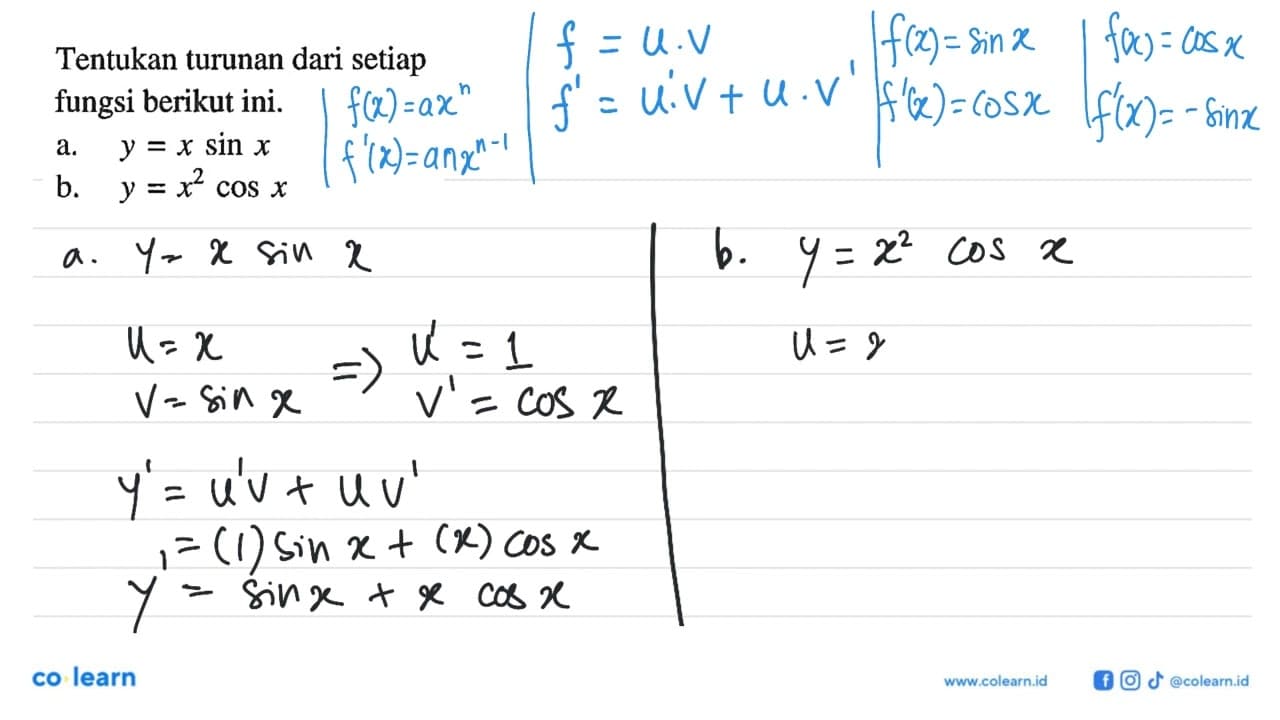 Tentukan turunan dari setiap
fungsi berikut ini.
a. y = x sin x
b. y = x² cos x
f(x)=axⁿ
f'(x)=anxⁿ⁻¹
f = u.v
f' = u'.v + u.v'
f(x)= sin x
f'(x)=cosx
f(x)= cos x
f'(x)= - sinx
a. y = x sin x
u = x
v = sin x
=>
u' = 1
v' = cos x
y' = u'v + uv'
= (1) sin x + (x) cos x
y' = sin x + x cos x
b. y = x² cos x
u =
co learn
www.colearn.id
@colearn.id